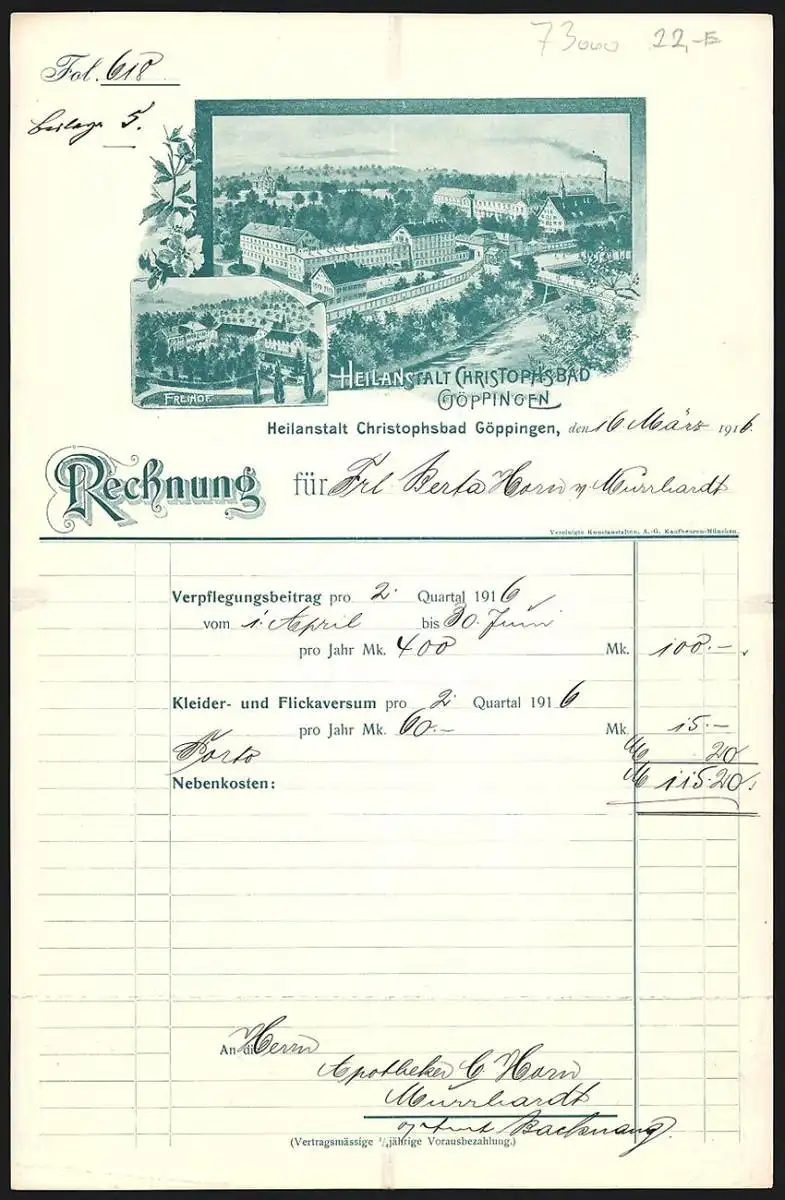 73000 22,-E
Fol. 618
Beilage 5.
FREIHOF
HEILANSTALT CHRISTOPHSBAD
GÖPPINGEN
Heilanstalt Christophsbad Göppingen, den 16 März 1916.
Rechnung für Frl. Berta Horn v. Murrhardt
Vereinigte Kunstanstalten, A.-G. Kaufbeuren-München.
Verpflegungsbeitrag pro 2. Quartal 1916
vom 1. April bis 30. Juni
pro Jahr Mk. 400 Mk. 100.-
Kleider- und Flickaversum pro 2. Quartal 1916
pro Jahr Mk. 60.- Mk. 15.-
Porto M .20
Nebenkosten: M 115.20.
An die Herrn
Apotheker C Horn
Murrhardt
Backnang.
(Vertragsmässige ¼jährige Vorausbezahlung.)